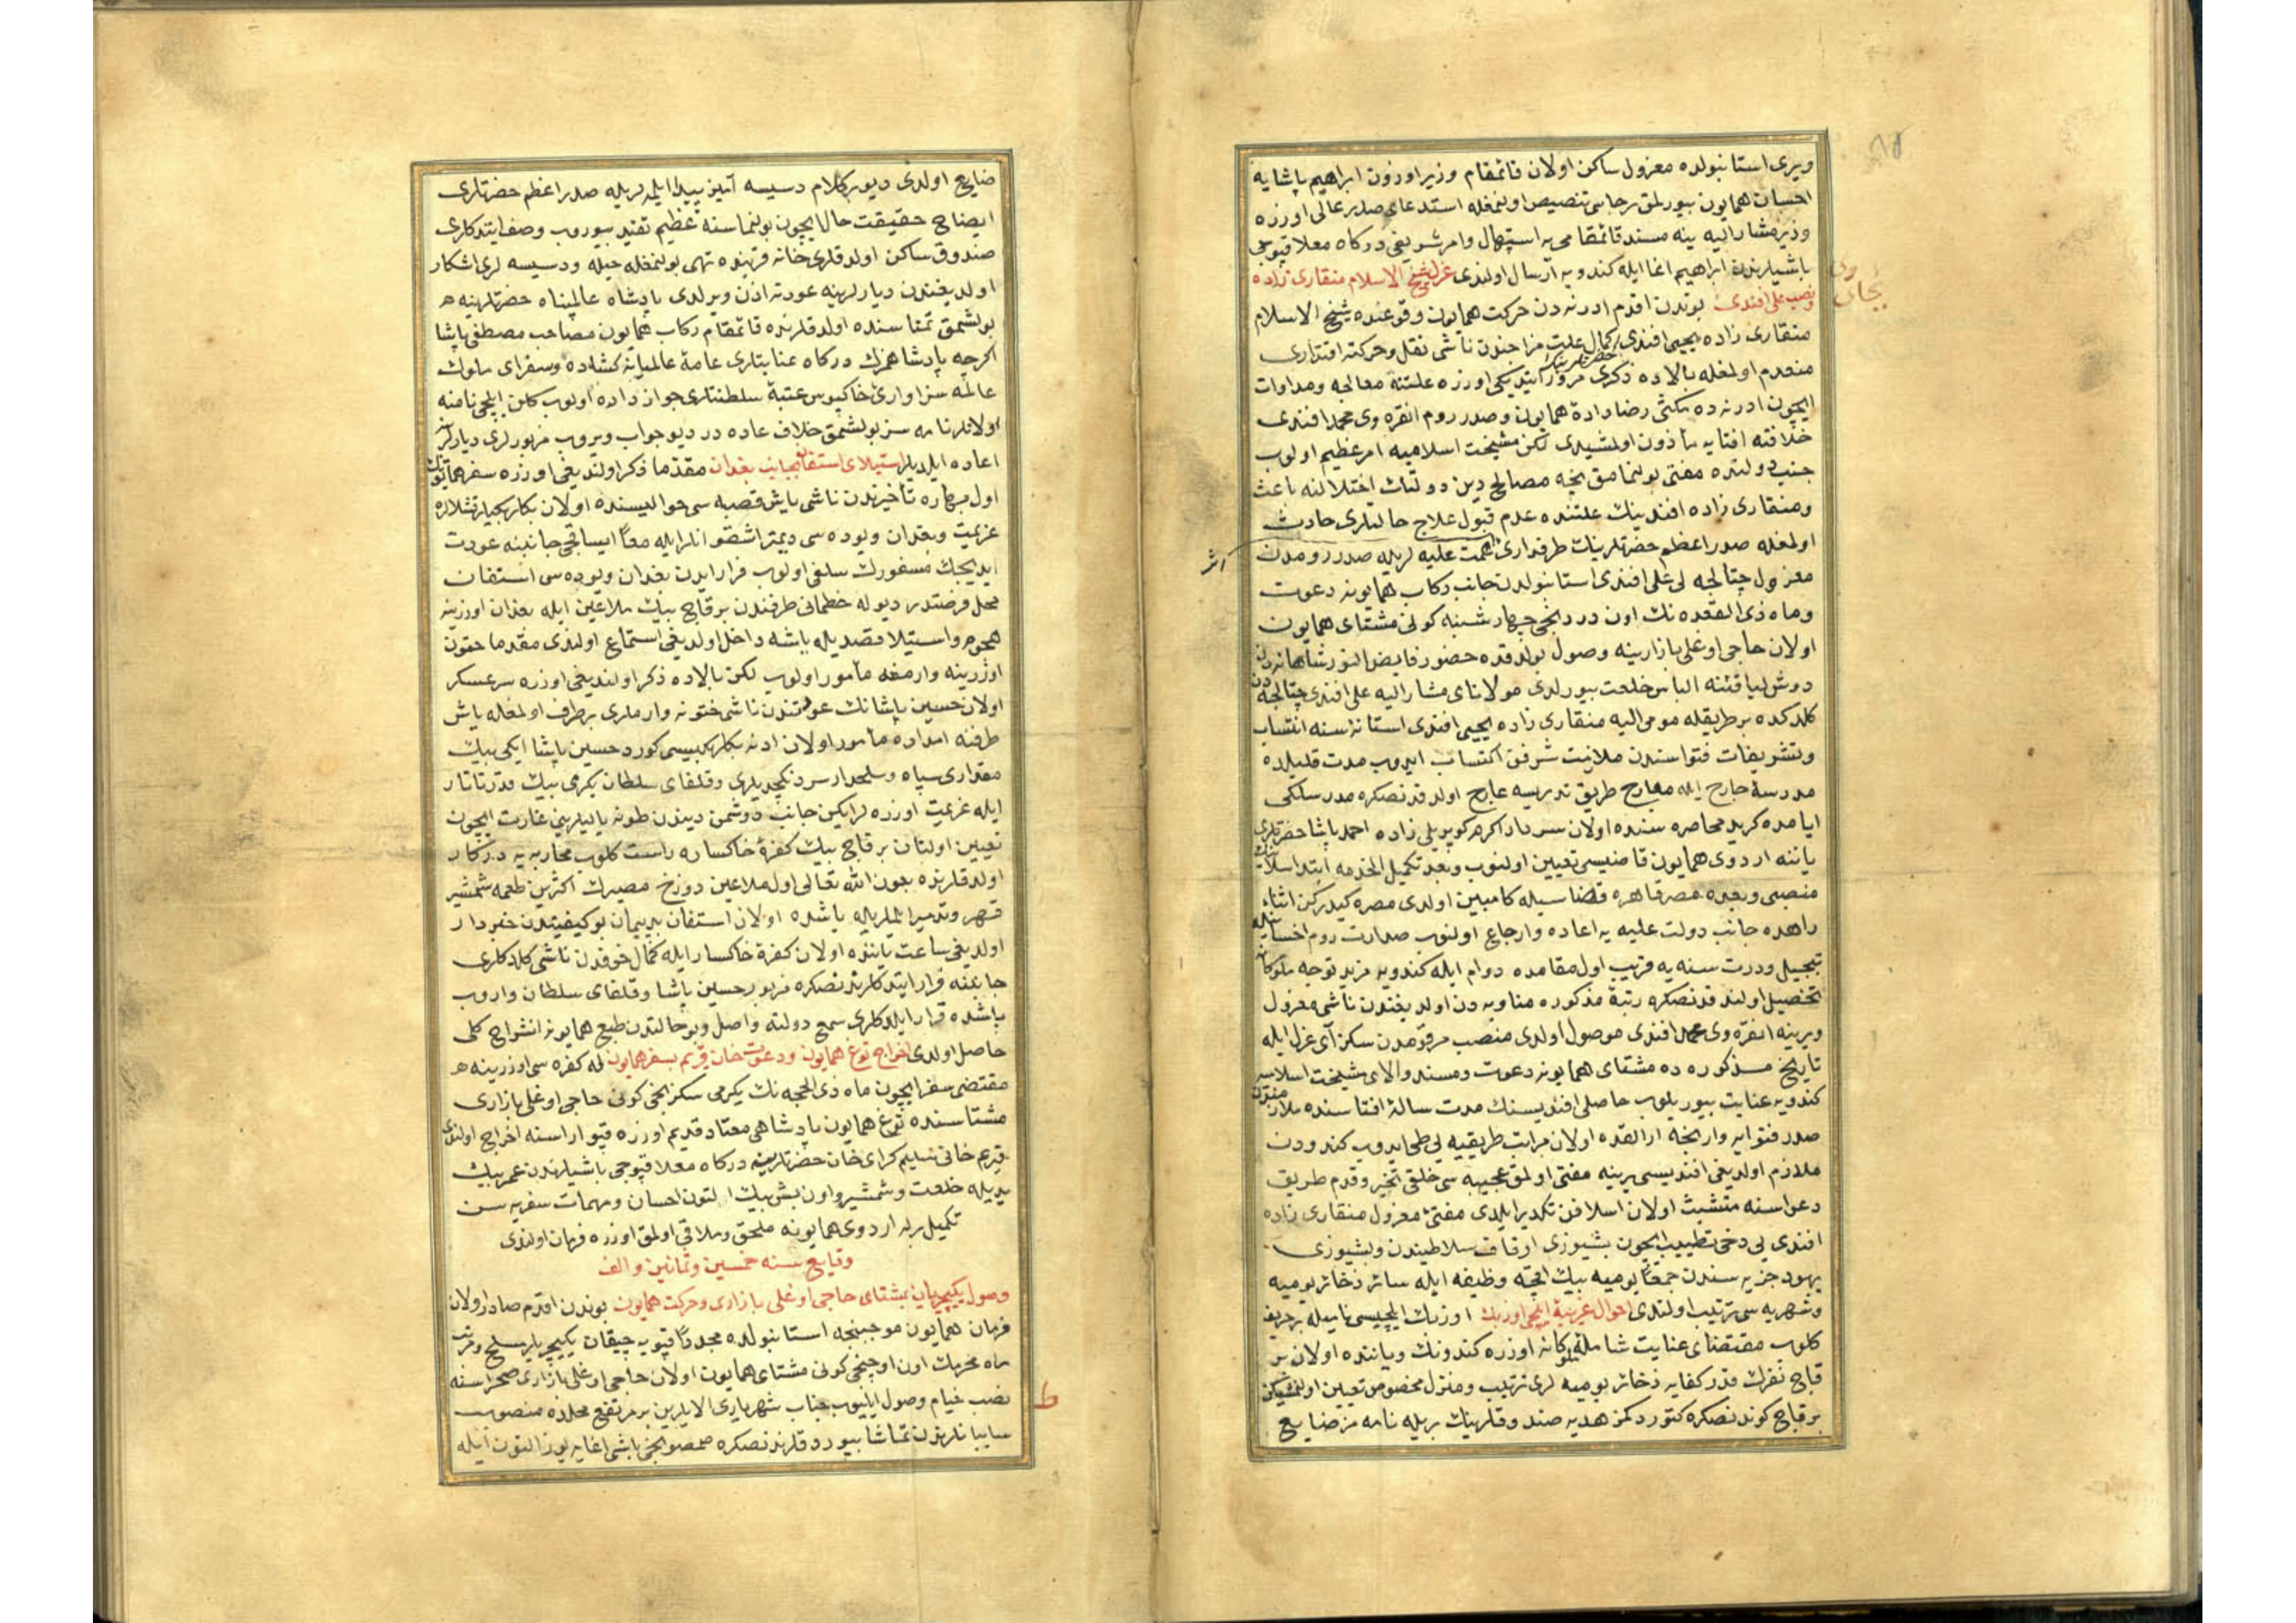 ویرى استانبولده معزول ساكن اولان قائمقام وزیر اوزون ابراهیم پاشایه
احسان همایون بیورلمق رجاسى تنصیص اولنمغله استدعاى صدر عالى اوزره
وزیر مشار الیه ینه مسند قائمقامى یه استیهال وامر شریفى دركاه معلا قپوجى
باشیلرندن ابراهیم اغا ایله كندویه ارسال اولندى عزل شیخ الاسلام منقارى زاده
ونصب على افندى بوندن اقدم ادرنه دن حركت همایون وقوعنده شیخ الاسلام
منقارى زاده یحیى افندى كمال علت مزاجندن ناشى نقل وحركته اقتدارى
منعدم اولمغله بالاده ذكرى مرور ایتدیكى اوزره علتنه معالجه ومداوات
ایچون ادرنه ده مكثى رضا داده همایون وصدر روم انقره وى محمد افندى
خلافته افتایه مأذون اولمشیدى لكن مشیخت اسلامیه امر عظیم اولوب
جنب دولتده مفتى بولنمامق نیجه مصالح دین دولتك اختلالنه باعث
ومنقارى زاده افندینك علتنده عدم قبول علاج حالتلرى حادث
اولمغله صدر اعظم حضرتلرینك طرفدارى همت علیه لریله صدر رومدن
معزول چتالجه لى على افندى استانبولدن جانب ركاب همایونه دعوت
وماه ذى القعده نك اون دردنجى چهارشنبه كونى مشتاى همایون
اولان حاجى اوغلى بازارینه وصول بولدقده حضور فایض النور شاهانه دن
دوش لیاقتنه الباس خلعت بیورلدى مولاناى مشار الیه على افندى چتالجه دن
كلدكده بر طریقله مومى الیه منقارى زاده یحیى افندى استانه سنه انتساب
وتشریفات فتواسندن ملازمت شرفن اكتساب ایدوب مدت قلیلده
مدرسه خارج ایله معارج طریق تدریسه عارج اولدقدنصكره مدرسلكى
ایامده كرید محاصره سنده اولان سردار اكرم كوپریلى زاده احمد پاشا حضرتلرى
یاننه اردوى همایون قاضیسى تعیین اولنوب وبعد تكمیل الخدمه ابتدا سلانیك
منصبى وبعده مصر قاهره قضاسیله كامبین اولدى مصره كیدركن اثناء
راهده جانب دولت علیه یه اعاده وارجاع اولنوب صدارت روم احسانیله
تبجیل ودرت سنه یه قریب اول مقامده دوام ایله كندویه مزید توجه ملوكانه
تحصیل اولندقدنصكره رتبه مذكوره مناوبه دن اولدیغندن ناشى معزول
ویرینه انقره وى محمد افندى موصول اولدى منصب مرقومدن سكز آى عزل ایله
تاریخ مذكوره ده مشتاى همایونه دعوت ومسند والاى مشیخت اسلامیه
كندویه عنایت بیوریلوب حاصلى افندیسنك مدت ساله افتاسنده ملازمتدن
صدر فتوایه وارنجه ارالقده اولان مراتب طریقیه یى طى ایدوب كندودن
ملازم اولدیغى افندیسى یرینه مفتى اولمق عجیبه سى خلقى تحیر وقدم طریق
دعواسنه متشبث اولان اسلافن تكدیر ایلدى مفتئ معزول منقارى زاده
افندى یى دخى تطییب ایچون بشیوزى اوقاف سلاطیندن وبشیوزى
یهود جزیه سندن جمعا یومیه بیك اقچه وظیفه ایله سائر ذخائر یومیه
وشهریه سى ترتیب اولندى احوال غریبه ایلچى اوزبك اوزبك ایلچیسى نامیله بر حریف
كلوب مقتضاى عنایت شامله ملوكانه اوزره كندونك ویاننده اولان بر
قاچ نفرك قدر كفایه ذخائر یومیه لرى ترتیب ومنزل مخصوص تعیین اولنمشیكن
بر قاچ كوندنصكره كتوردكمز هدیه صندوقلرینك بریله نامه مز ضایع
ضایع اولدى دیو بركلام دسیسه آمیز پیدا ایلمه لریله صدر اعظم حضرتلرى
ایضاح حقیقت حال ایچون بولنماسنه عظیم تقید بیوروب وصف ایتدكلرى
صندوق ساكن اولدقلرى خانه قربنده تهى بولنمغله حیله ودسیسه لرى اشكار
اولدیغندن دیارلرینه عودته اذن ویرلدى پادشاه عالمپناه حضرتلرینه
بولشمق تمناسنده اولدقلرنده قائمقام ركاب همایون مصاحب مصطفى پاشا
اكرچه پادشاهمزك دركاه عنایتلرى عامه عالمیانه كشاده وسفراى ملوك
عالمه سزاوارى خاكپوس عتبه سلطنتلرى جواز داده اولوب لكن ایلچى نامنه
اولانلر نامه سز بولشمق خلاف عاده در دیو جواب ویروب مزبورلرى دیارلرینه
اعاده ایلدیلر استیلاى استفان بجانب بغدان مقدما ذكر اولندیغى اوزره سفر همایونك
اول بهاره تأخیرندن ناشى یاش قصبه سى حوالیسنده اولان بكلربكیلر قشلالره
عزیمت وبغدان ویوده سى دیمتراشقو انلر ایله معا ایساقچى جانبنه عودت
ایدیجك مسفورك سلفى اولوب فرار ایدن بغدان ویوده سى استفان
محل فرصتدر دیو له خطمانى طرفندن بر قاچ بیك ملاعین ایله بغدان اوزرینه
هجوم واستیلا قصدیله یاشه داخل اولدیغى استماع اولندى مقدما خوتن
اوزرینه وارمغه مأمور اولوب لكن بالاده ذكر اولندیغى اوزره سرعسكر
اولان حسین پاشانك عودتندن ناشى خوتنه وارملرى برطرف اولمغله یاش
طرفنه امداده مأمور اولان ادنه بكلربكیسى كورد حسین پاشا ایكى بیك
مقدارى سپاه وسلحدار سردنكچدیلرى وقلغاى سلطان یكرمى بیك قدر تاتار
ایله عزیمت اوزره لر ایكن جانب دوشمن دیندن طونه یالیلرینى غارت ایچون
تعیین اولنان بر قاچ بیك كفره خاكساره راست كلوب محاربه یه دركار
اولدقلرنده بعون الله تعالى اول ملاعین دوزخ مصیرك اكثرین طعمه شمشیر
قهر وتدمیر ایلملریله یاشده اولان استفان بدپیمان بو كیفیتدن خبردار
اولدیغى ساعت یاننده اولان كفره خاكسار ایله كمال خوفدن ناشى كلدكلرى
جانبنه فرار ایتدكلرندنصكره مزبور حسین پاشا وقلغاى سلطان واروب
یاشده قرار ایلدكلرى سمع دولته واصل وبو حالتدن طبع همایونه انشراح كلى
حاصل اولدى اخراج توغ همایون ودعوت خان قریم بسفر همایون له كفره سى اوزرینه
مقتضى سفر ایچون ماه ذى الحجه نك یكرمى سكزنجى كونى حاجى اوغلى بازارى
مشتاسنده توغ همایون پادشاهى معتاد قدیم اوزره قپو اراسنه اخراج اولندى
قریم خانى سلیم كراى خان حضرتلرینه دركاه معلا قپوجى باشیلرندن عمر بیك
یدیله خلعت وشمشیر واون بش بیك التون احسان ومهمات سفریه سن
تكمیل برله اردوى همایونه ملحق وملاقى اولمق اوزره فرمان اولندى
وقایع سنه خمسین وثمانین والف
وصول یكیچریان بمشتاى حاجى اوغلى بازارى وحركت همایون بوندن اقدم صادر اولان
فرمان همایون موجبنجه استانبولده مجددا قپویه چیقان یكیچریلر مسلح ومرتب
ماه محرمك اون اوچنجى كونى مشتاى همایون اولان حاجى اوغلى بازارى صحراسنه
نصب خیام وصول ایلیوب جناب شهریارى الایلرین بر مرتفع محلده منصوب
سایبانلرندن تماشا بیوردقلرندنصكره صمصونجى باشى اغایه یوز التون ایله